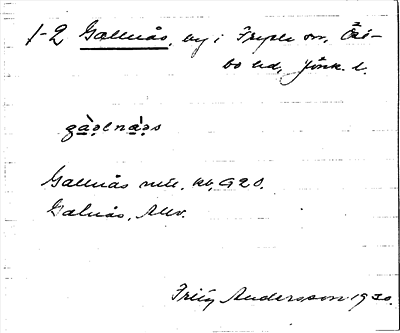 1-2 Gallnås, by i Fryele sn, Öst-
bo hd, Jönk. l.
gà̤əlnà̤əs
Gallnås mtl. kb, G20.
Galnås, Allv.
Fritz Andersson 1930.